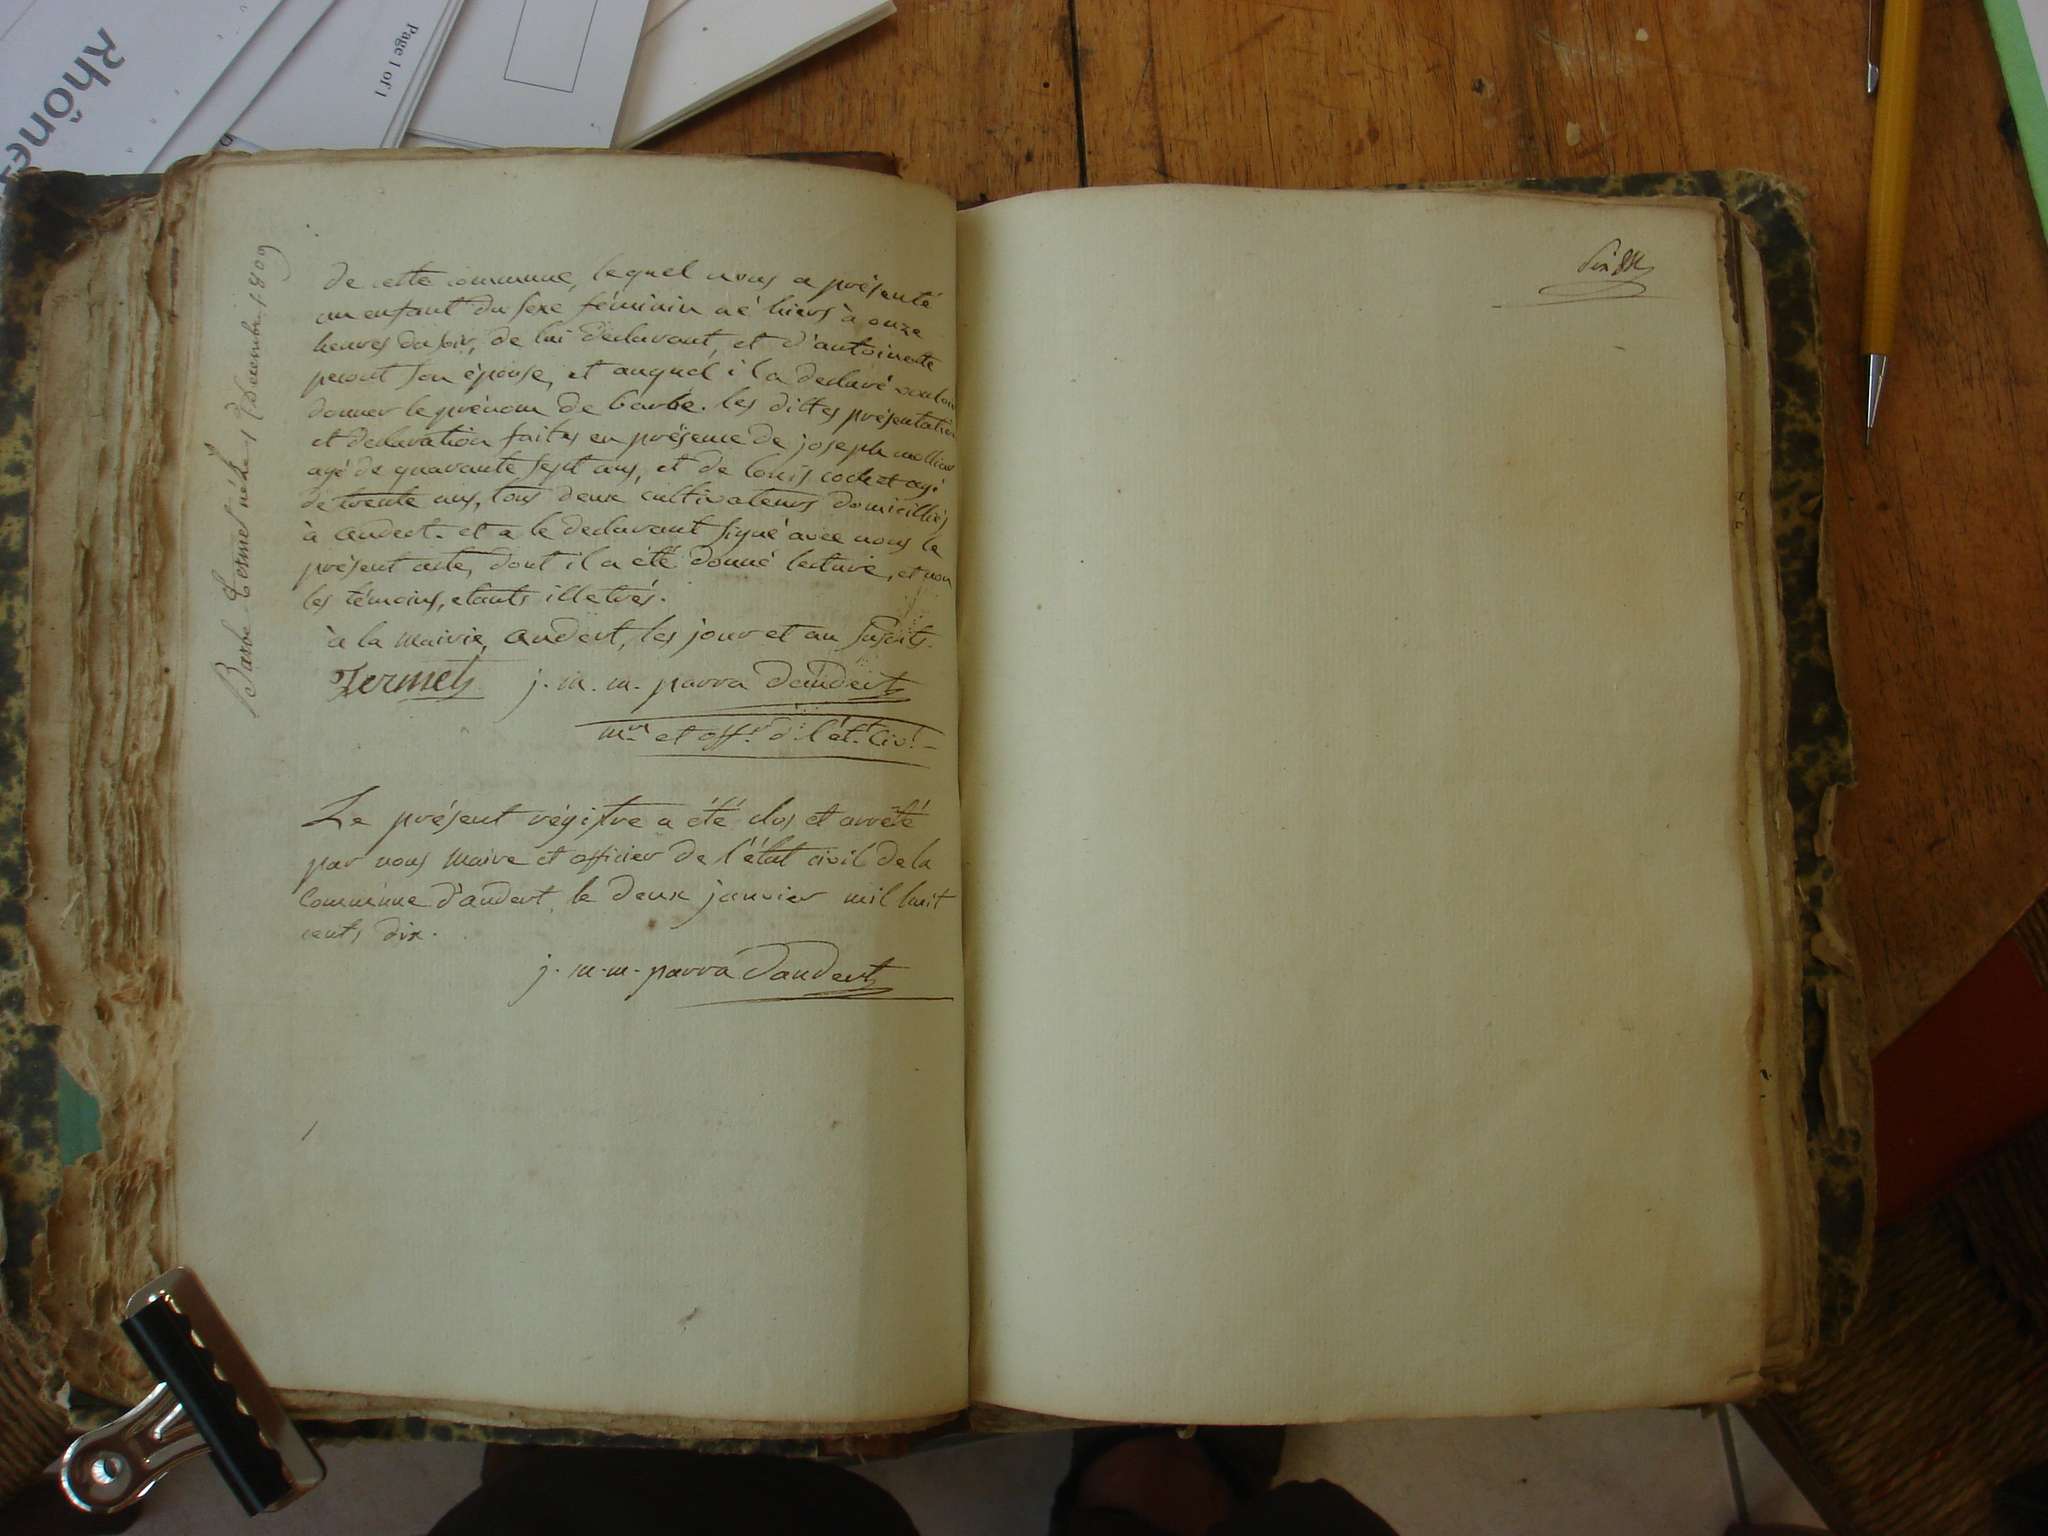 Rhône
Page 1 of 1
Barbe Termet née le 17 Décembre 1809
de cette commune, lequel nous a présenté
un enfant du sexe féminin né hiers à onze
heures du soir, de lui déclarant, et d'antoinette
peront son épouse, et auquel il a declaré vouloir
donner le prénom de barbe. les dittes présentation
et declaration faites en présence de joseph
agé de quarante sept ans, et de louis cochet agé
de trente ans, tous deux cultivateurs domicilliés
à andert. et a le declarant signé avec nous le
présent acte, dont il a été donné lecture, et non
les témoins, etants illetrés.
à la mairie, andert, les jour et an susdits.
Termet j. m. m. parra dandert
m.re et off.r d. l'ét.t civ.l
Le présent régistre a été clos et arrêté
par nous maire et officier de l'état civil de la
Commune d'andert, le deux janvier mil huit
cents dix.
j. m. m. parra dandert